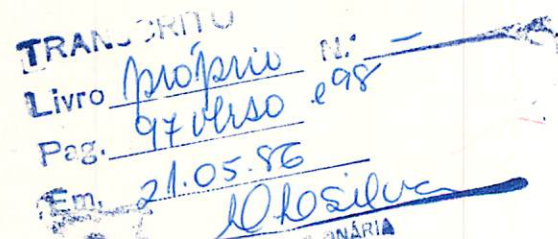 TRANSCRITO
Livro próprio N.º -
Pag. 97 verso e 98
Em, 21.05.86